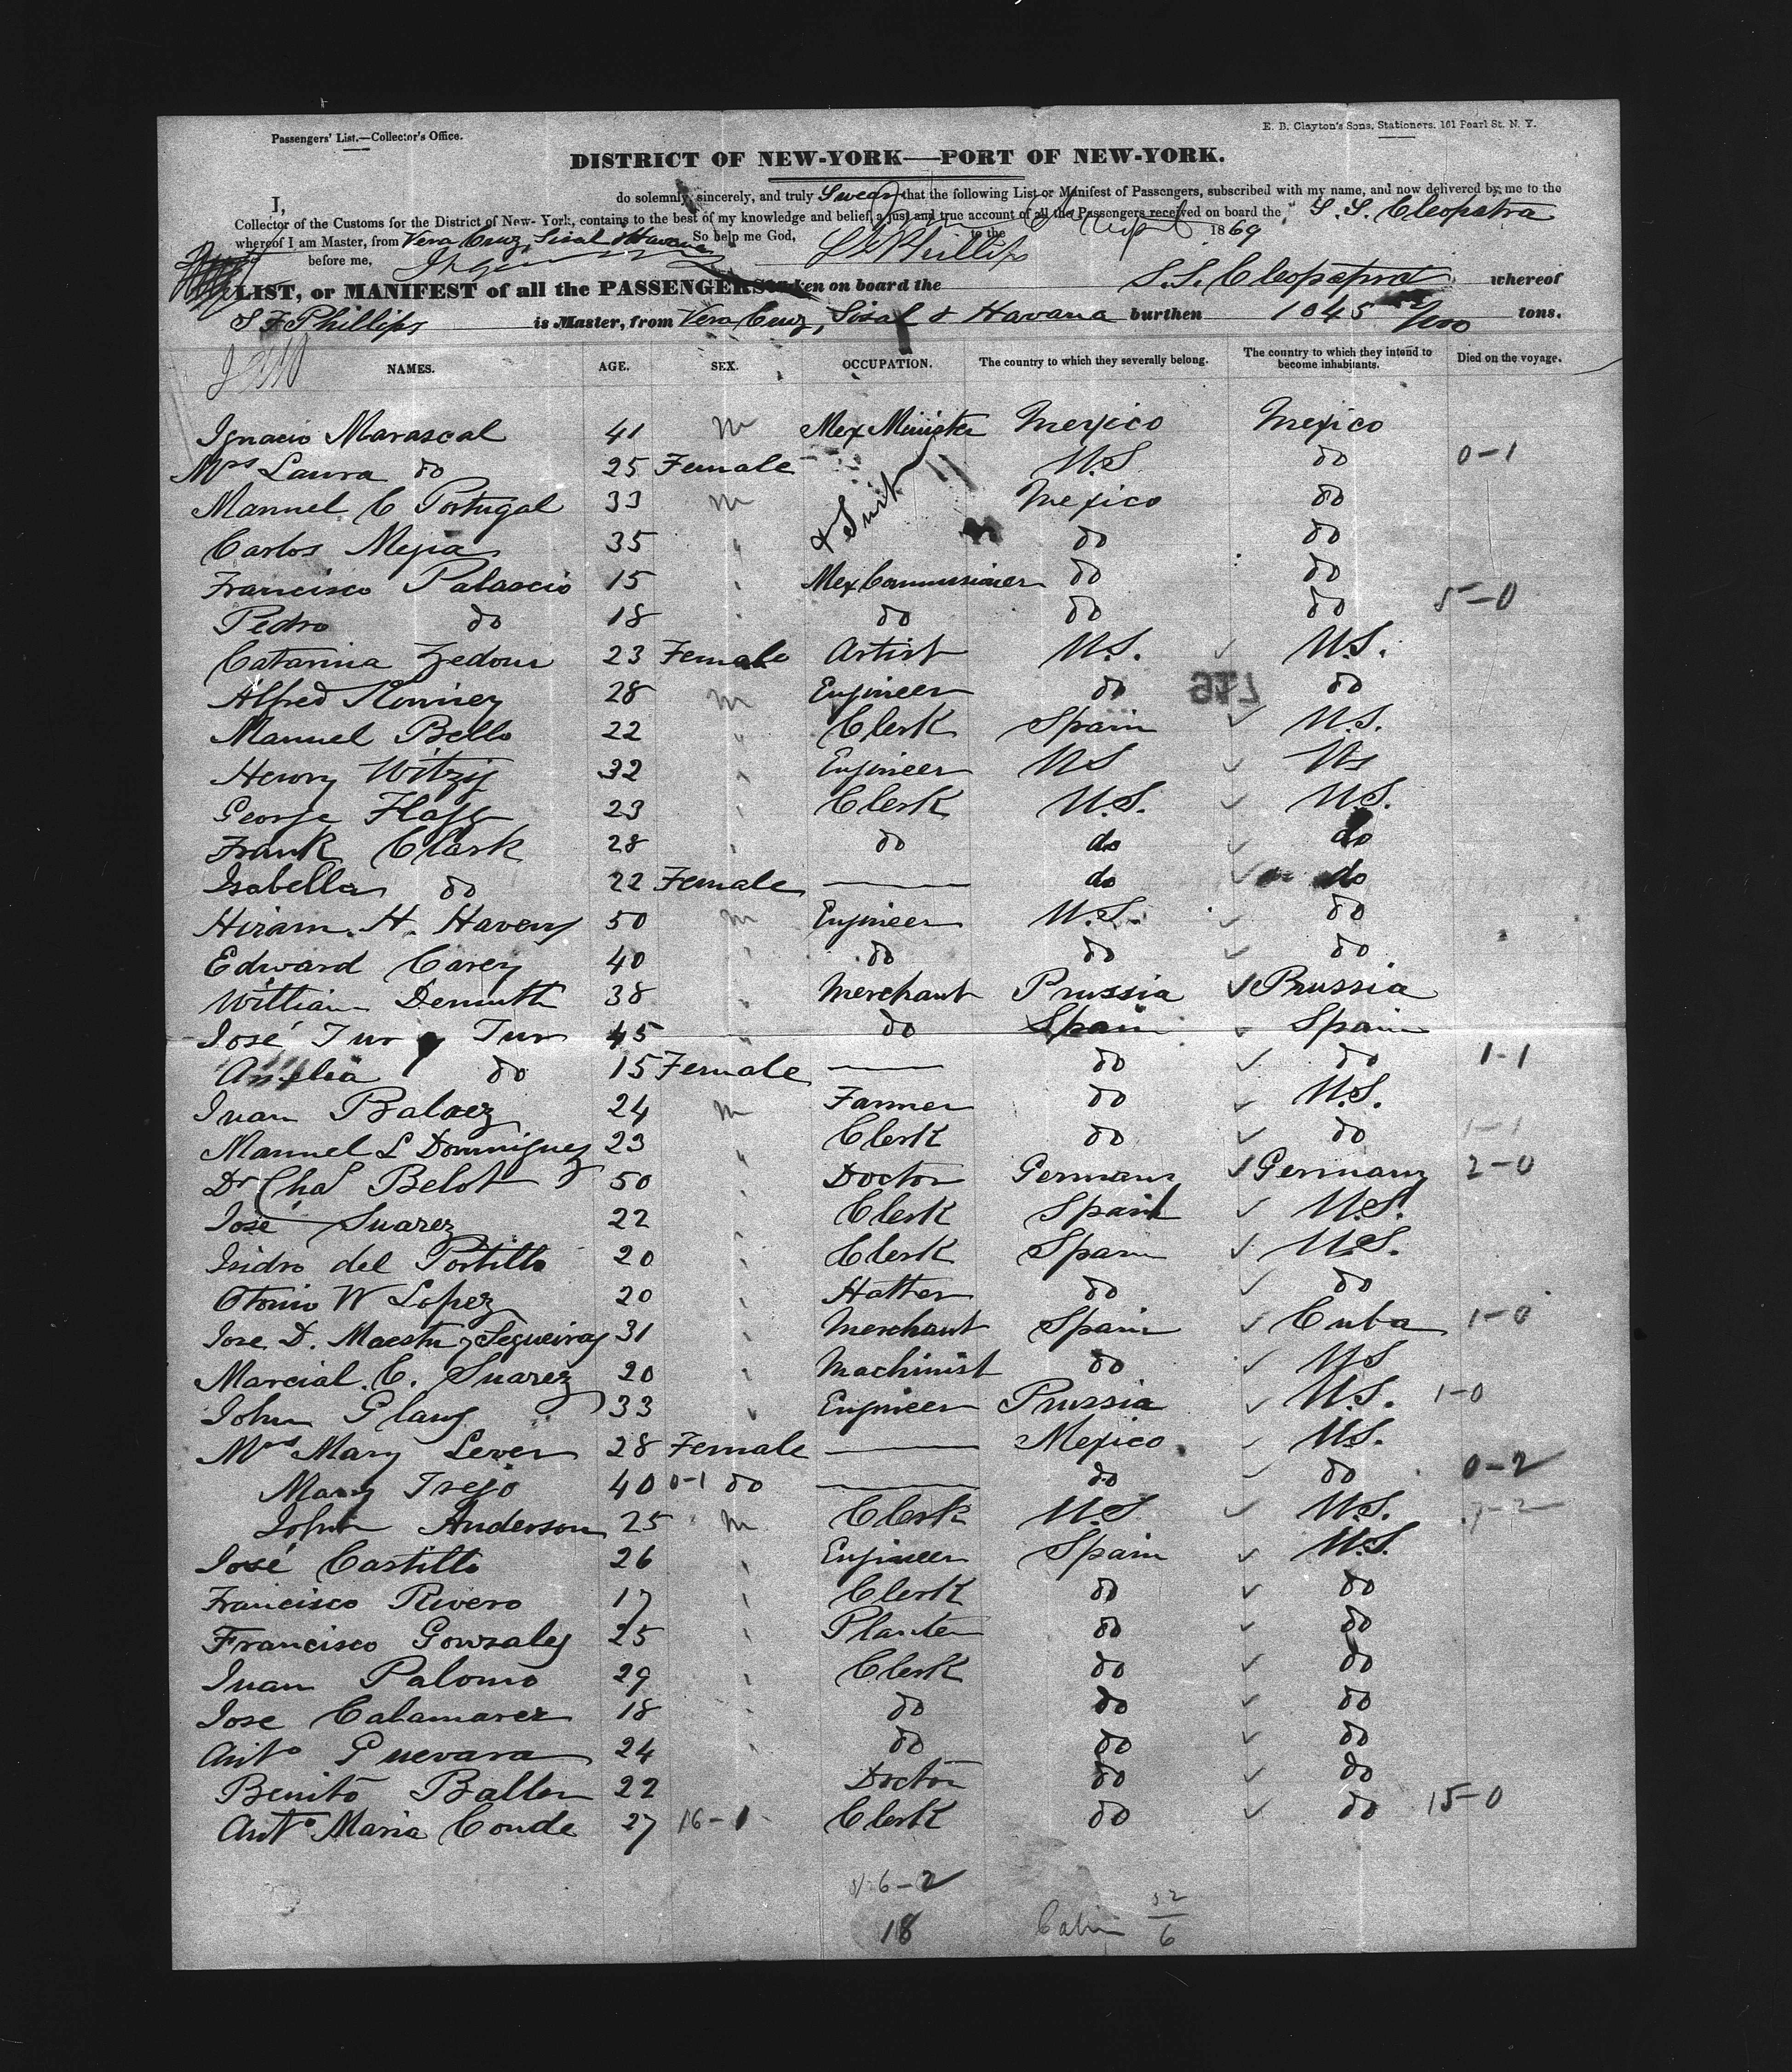 Passengers' List.—Collector's Office.
E. B. Clayton's Sons, Stationers, 161 Pearl St. N. Y.
DISTRICT OF NEW-YORK—PORT OF NEW-YORK.
I, do solemnly, sincerely, and truly Swear that the following List or Manifest of Passengers, subscribed with my name, and now delivered by me to the
Collector of the Customs for the District of New-York, contains to the best of my knowledge and belief, a just and true account of all the Passengers received on board the S.S. Cleopatra
whereof I am Master, from Vera Cruz, Sisal & Havana to the 1869
So help me God, Phillips
before me,
LIST, or MANIFEST of all the PASSENGERS taken on board the S.S. Cleopatra whereof
S F Phillips is Master, from Vera Cruz, Sisal & Havana burthen 1045 /100 tons.
NAMES. AGE. SEX. OCCUPATION. The country to which they severally belong. The country to which they intend to become inhabitants. Died on the voyage.
Ignacio Marascal 41 m Mex Minister Mexico Mexico
Mrs Laura do 25 Female U.S. do 0-1
Manuel C Portugal 33 m & Suit Mexico do
Carlos Mejia 35 " do do
Francisco Palascio 15 " Mex Commissioner do do
Pedro do 18 " do do do 5-0
Catarina Zedoni 23 Female Artist U.S. U.S.
Alfred 28 m Engineer do 917 do
Manuel Bello 22 " Clerk Spain U.S.
Henry Witzig 32 " Engineer US Us
George Flagg 23 " Clerk U.S. U.S.
Frank Clark 28 " do do do
Isabella do 22 Female — do do
Hiram. H. Havens 50 m Engineer U.S. do
Edward Carey 40 " do do do
William Demuth 38 " Merchant Prussia Prussia
José Tur y Tur 45 " do Spain Spain
Amelia do 15 Female — do do 1-1
Juan Balaez 24 m Farmer do U.S.
Manuel L Dominguez 23 " Clerk do do 1-1
Dr Chas Belot 50 " Doctor Germany Germany 2-0
José Suarez 22 " Clerk Spain U.S.
Isidro del Portillo 20 " Clerk Spain U.S.
Otonio W Lopez 20 " Hatter do do
Jose D. Maestu y Sequeiray 31 " Merchant Spain Cuba 1-0
Marcial. C. Suarez 20 " Machinist do US
John Glany 33 " Engineer Prussia U.S. 1-0
Mrs Mary Lever 28 Female — Mexico U.S.
Mary Trejo 40 0-1 do — do do 0-2
John Anderson 25 m Clerk U.S. U.S.
José Castillo 26 " Engineer Spain U.S.
Francisco Rivero 17 " Clerk do do
Francisco Gonzales 25 " Planter do do
Juan Palomo 29 " Clerk do do
Jose Calamarez 18 " do do do
Anto Guevara 24 " do do do
Benito Ballen 22 Doctor do do
Anto Maria Conde 27 16-1 Clerk do do 15-0
6-2
18 Cabin 32
6